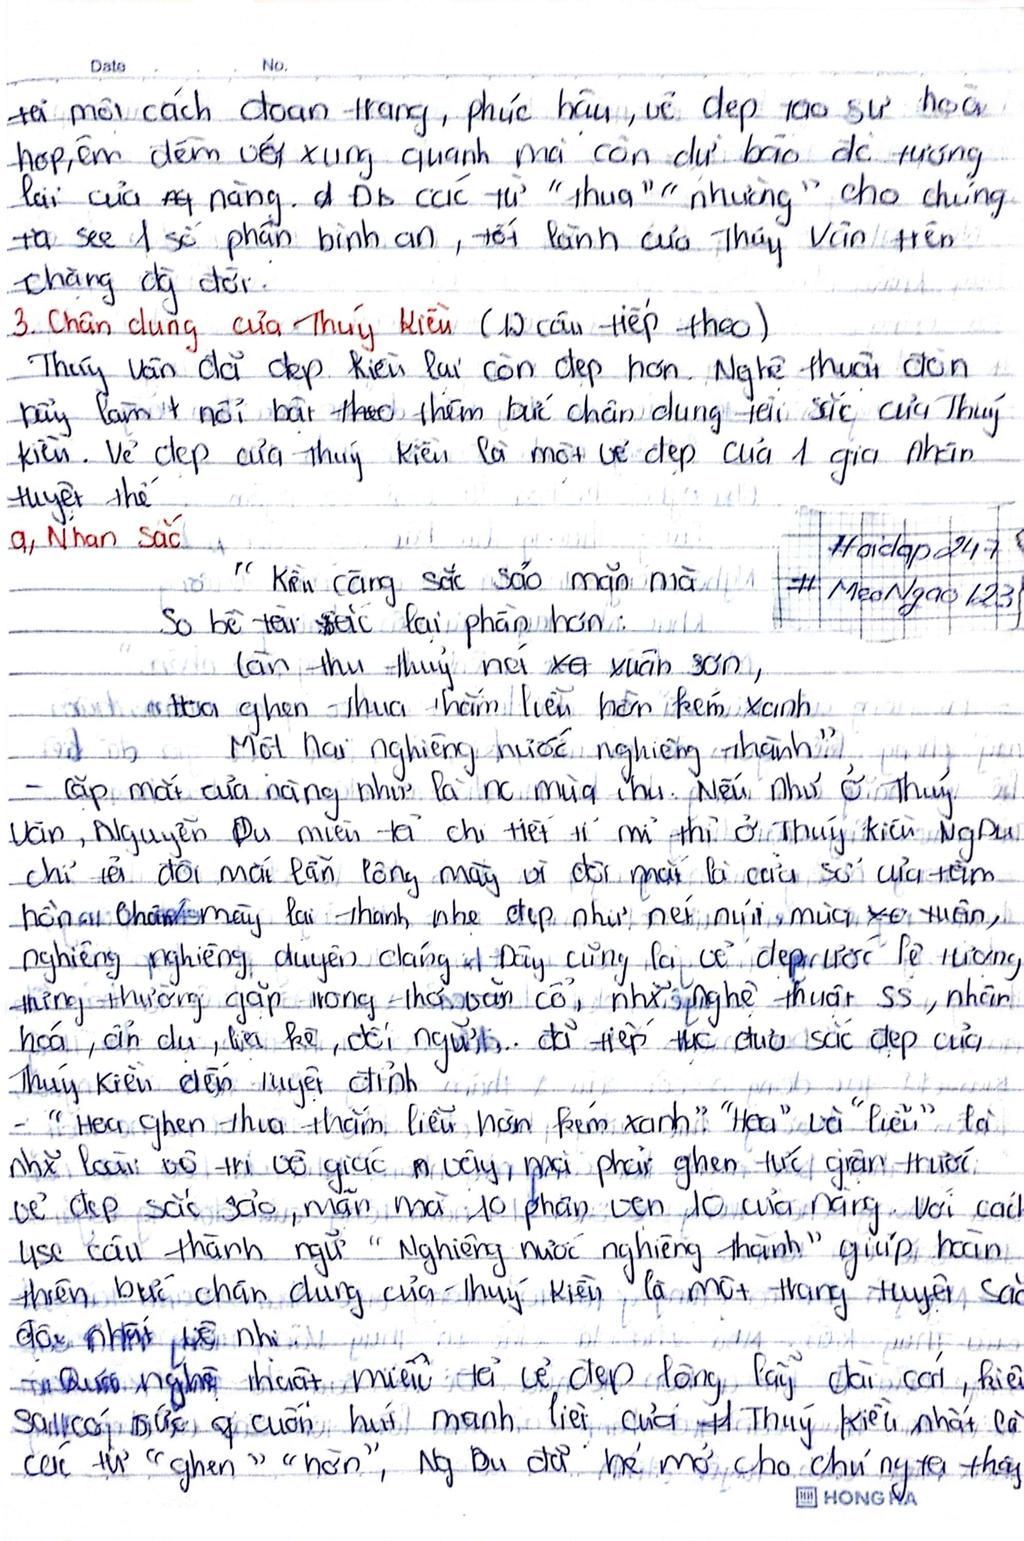 Date No.
tả một cách đoan trang, phúc hậu, vẻ đẹp tạo sự hoà
hợp, êm đềm với xung quanh mà còn dự báo đc tương
lai của nàng. Đb các từ "thua" "nhường" cho chúng
ta see 1 số phận bình an, tốt lành của Thúy Vân trên
chặng đg đời.
3. Chân dung của Thuý Kiều (12 câu tiếp theo)
Thuý Vân đã đẹp Kiều lại còn đẹp hơn. Nghệ thuật đòn
bẩy làm + nổi bật theo thêm bức chân dung tài sắc của Thuý
Kiều. Vẻ đẹp của Thuý Kiều là một vẻ đẹp của 1 giai nhân
tuyệt thế
a, Nhan sắc
Hoidap247
# MeoNgao123
"Kiều càng sắc sảo mặn mà
So bề tài sắc lại phần hơn.
Làn thu thuỷ nét xuân sơn,
Hoa ghen thua thắm liễu hờn kém xanh
Một hai nghiêng nước nghiêng thành"
- Cặp mắt của nàng như là nc mùa thu. Nếu như ở Thuý
Vân, Nguyễn Du miêu tả chi tiết tỉ mỉ thì ở Thuý Kiều Ng Du
chỉ tả đôi mắt lẫn lông mày vì đôi mắt là cửa sổ của tâm
hồn mày lại thanh nhẹ đẹp như nét núi mùa xuân,
nghiêng nghiêng duyên dáng. Đây cũng là vẻ đẹp ước lệ tượng
trưng thường gặp trong thơ văn cổ, những nghệ thuật SS, nhân
hoá, ẩn dụ, liệt kê, đối ngữ... đã tiếp tục đưa sắc đẹp của
Thuý Kiều đến tuyệt đỉnh
- "Hoa ghen thua thắm liễu hờn kém xanh" "Hoa" và "liễu" là
những loài vô tri vô giác vậy, mà phải ghen tức giận trước
vẻ đẹp sắc sảo, mặn mà 10 phân vẹn 10 của nàng. Với cách
use câu thành ngữ "Nghiêng nước nghiêng thành" giúp hoàn
thiện bức chân dung của Thuý Kiều là một trang tuyệt sắc
độc nhất vô nhị.
- nghệ thuật miêu tả vẻ đẹp lộng lẫy đài các, kiêu
sa có sức cuốn hút mãnh liệt của Thuý Kiều nhất là
các từ "ghen" "hờn", Ng Du đã hé mở cho chúng ta thấy
HONG HA